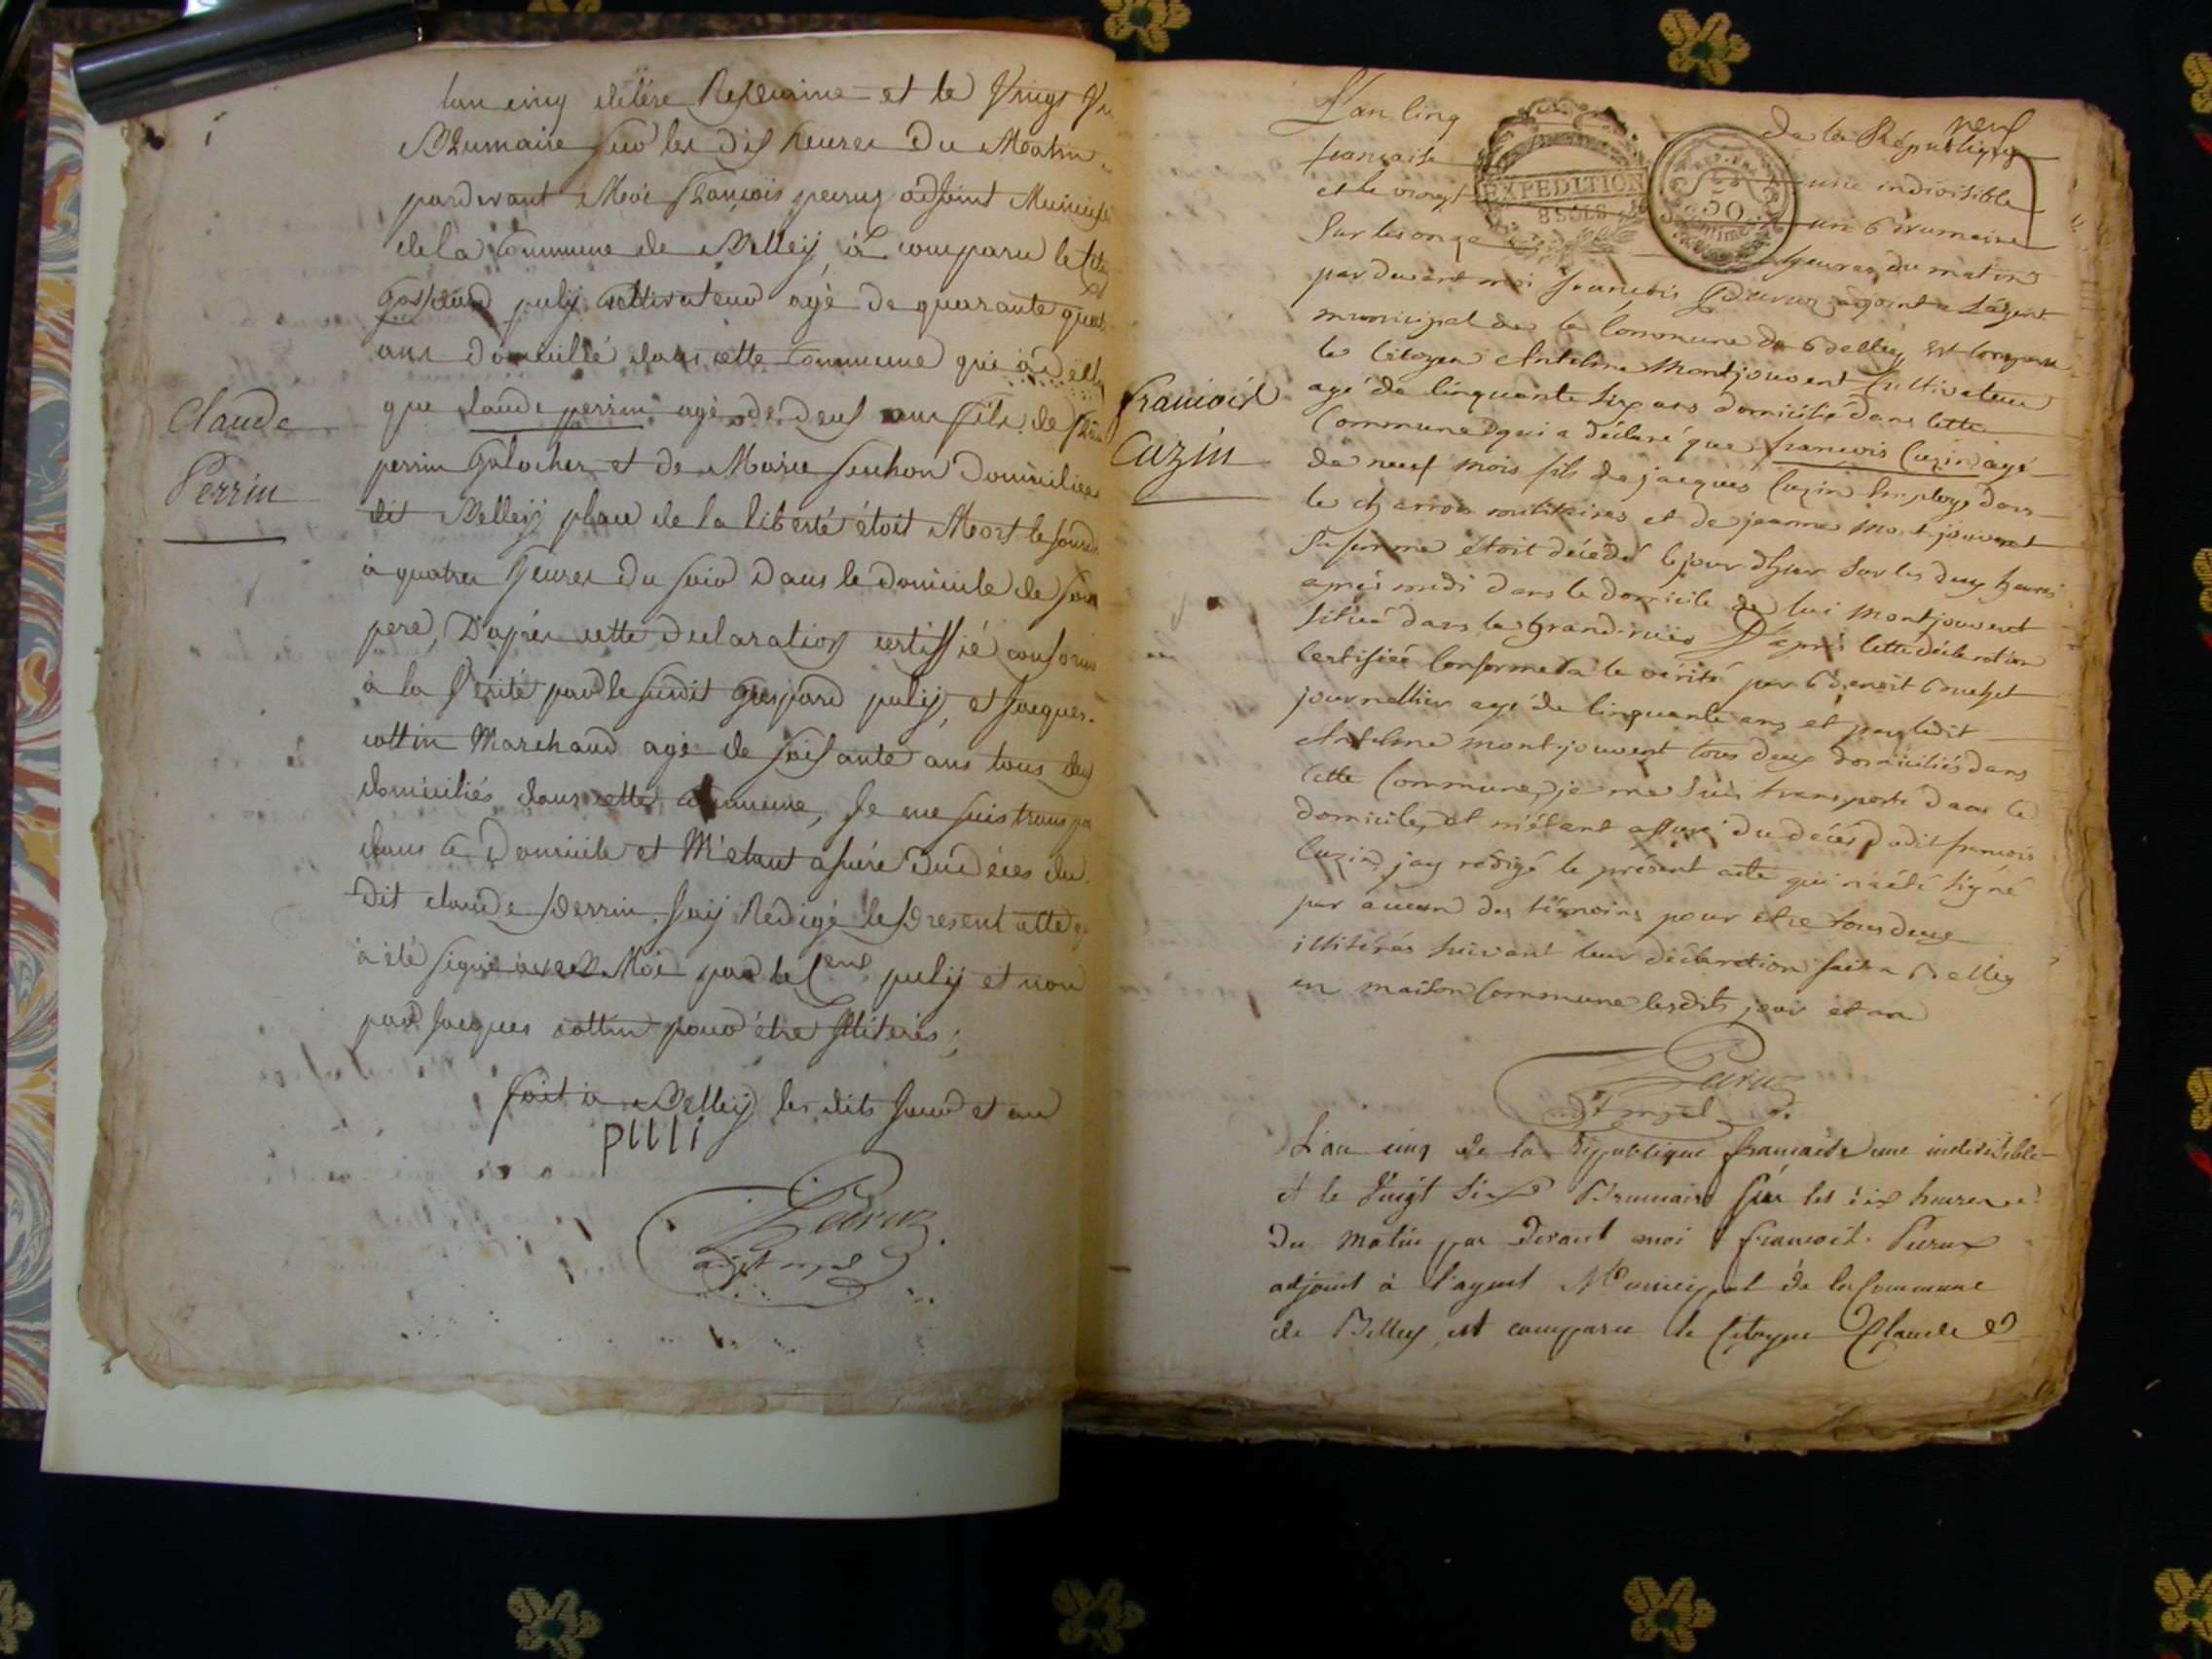 lan cinq delére Repcaine et le Vingt
Brumaire sur les dix heures Du Matin
pardevant Moi François peruz adjoint Municipal
dela Commune de Belley, à comparu le
Gaspard pulij Cultivateur agé de quarante quat
ans Domicillié dans cette Commune qui a déclaré
que claude perrin agé de deux ans fils de
Claude
Perrin
perrin Galocher et de Marie Domiciliés
dit Belleij place de la liberté étoit Mort le jourd
à quatre heures Du soir Dans le Domicile de son
pere, D'après cette Declaration certiffié conforme
à la Vérité par le susdit Gaspard pulij, et Jacques
cottin Marchand agé de soixante ans tous deux
domiciliés dans cette Commune, Je me suis transpo
dans le Domicile et M'etant assuré Du Décés du
Dit claude Perrin, Jaij Redigé le Present acte q
à été signé avec Moi par le Cens pulij et non
par Jacques cottin pour être Illiterés;
fait à Belleij les dits Jour et an
pulli
Peruz
adjt mpal
L'an Cinq de la République
neuf
francaise une indivisible
et le vingt un brumaire
Sur les onze heures du matin
EXPEDITION
8 SOLS
50
par devant moi francois Peruz adjoint a Lagent
municipal de la Commune de belley, est comparu
le Citoyen Antelme Montjouvent Cultivateur
agé de Cinquante six ans domicilié dans cette
Commune qui a déclaré que francois Cuzin agé
francois
Cuzin
de neuf mois fils de jacques Cuzin Employé dans
le charrois militaires et de jeanne Montjouvent
sa femme étoit décédé le jour d'hier sur les deux heures
après midi dans le domicile de lui montjouvent
situé dans la Grand-rüe D'après cette déclaration
Certifiée Conforme a la vérité par benoit
journallier agé de Cinquante ans et par ledit
Antelme mont-jouvent tous deux domiciliés dans
Cette Commune, je me suis transporté dans le
domicile, et m'étant assuré du décés dudit francois
Cuzin, jay rédigé le présent acte qui n'a été signé
par aucun des témoins pour etre tous deux
illitérés suivant leur déclaration fait a Belley
en maison Commune lesdits jour et an
Peruz
adjt mpal
L'an cinq de la République francaise une indivisible
et le Vingt Six Brumaire sur les dix heures
Du Matin par devant moi francois Peruz
adjoint à l'agent Municipal de la Commune
de Belley est comparu le Citoyen Claude